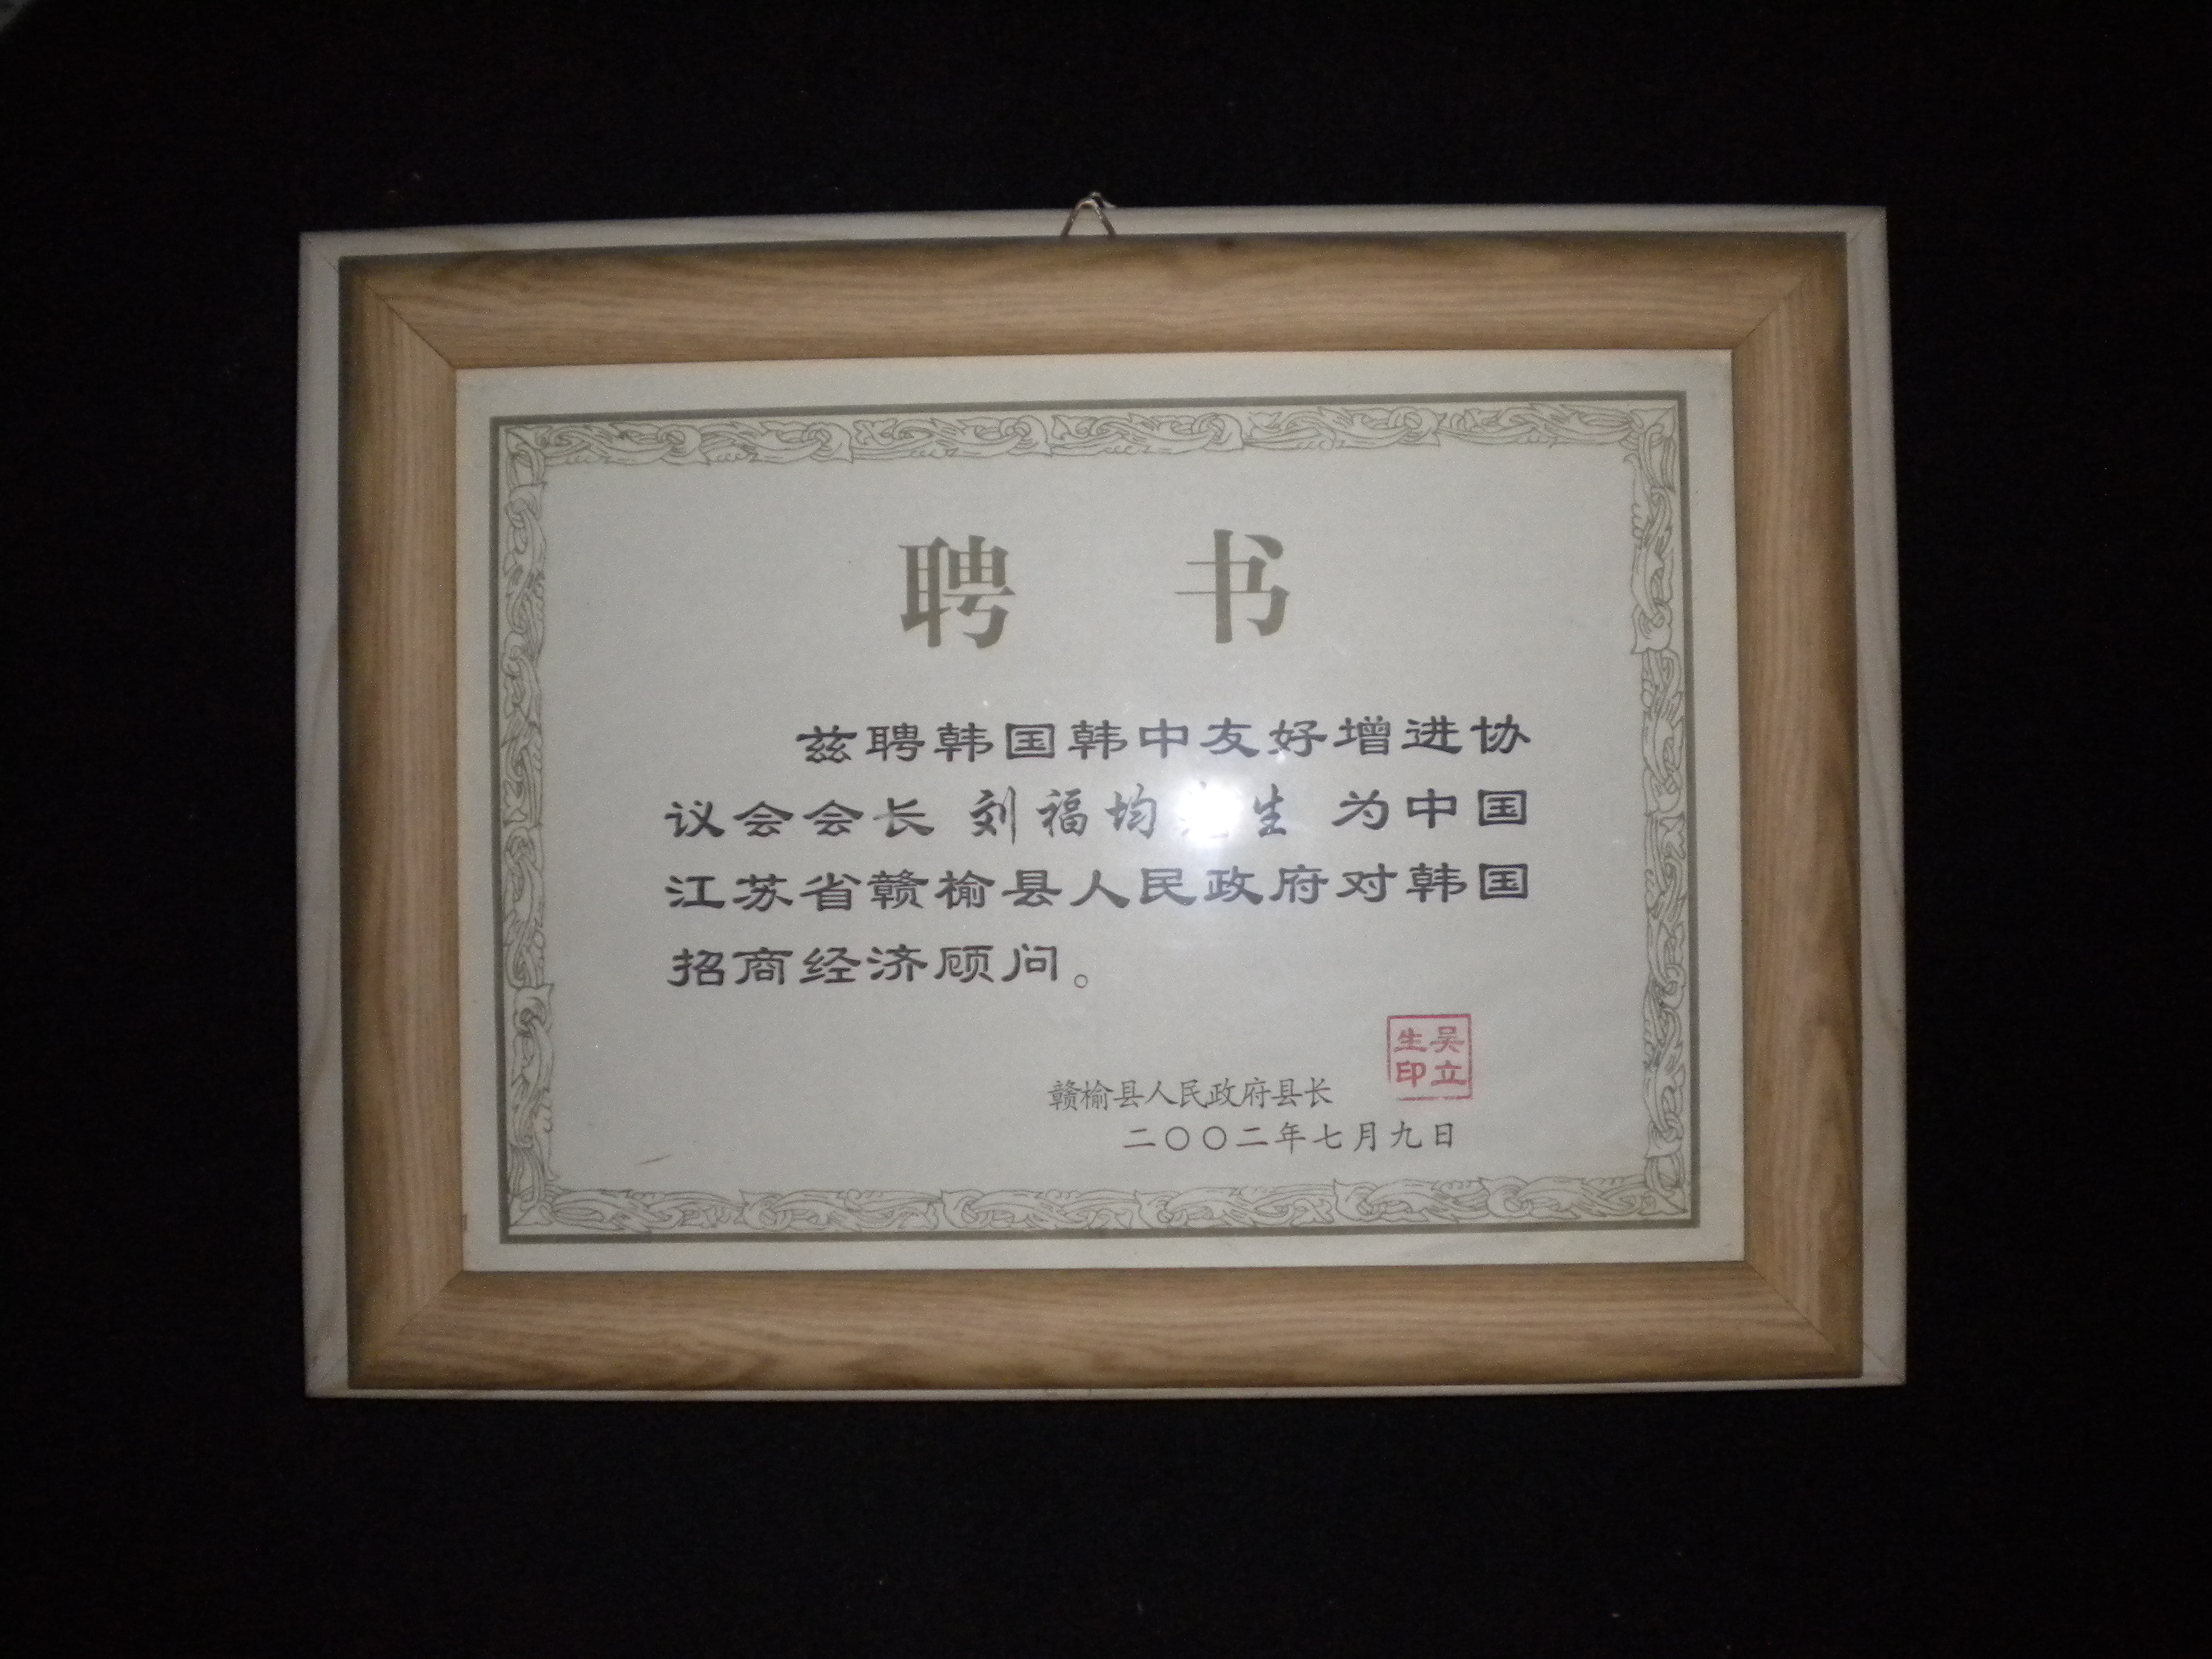 聘 书
兹聘韩国韩中友好增进协
议会会长 刘福均 生 为中国
江苏省赣榆县人民政府对韩国
招商经济顾问。
吴立生印
赣榆县人民政府县长
二〇〇二年七月九日